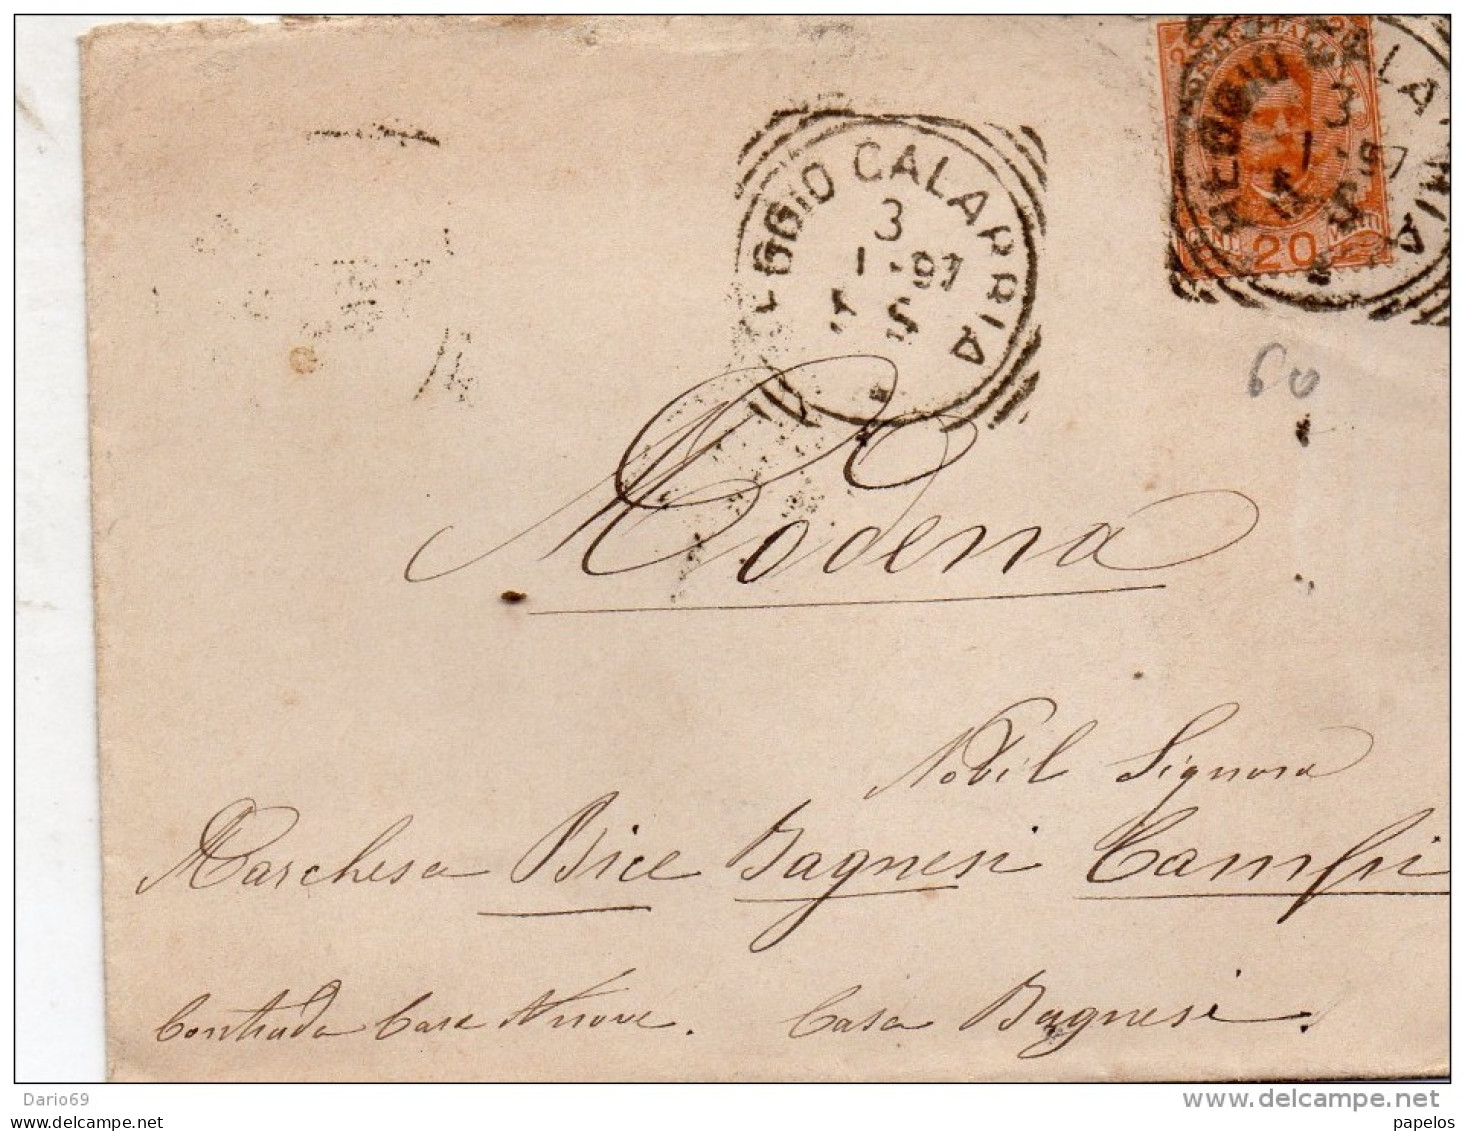 REGGIO CALABRIA
3
1 · 97
S
POSTE ITALIANE
CENT. 20 VENTI
REGGIO CALABRIA
3
1 · 97
S
60
Modena
Nobil Signora
Marchesa Bice Bagnesi Campi
Contrada Case Nuove. Casa Bagnesi.
Dario69
www.delcampe.net
papelos